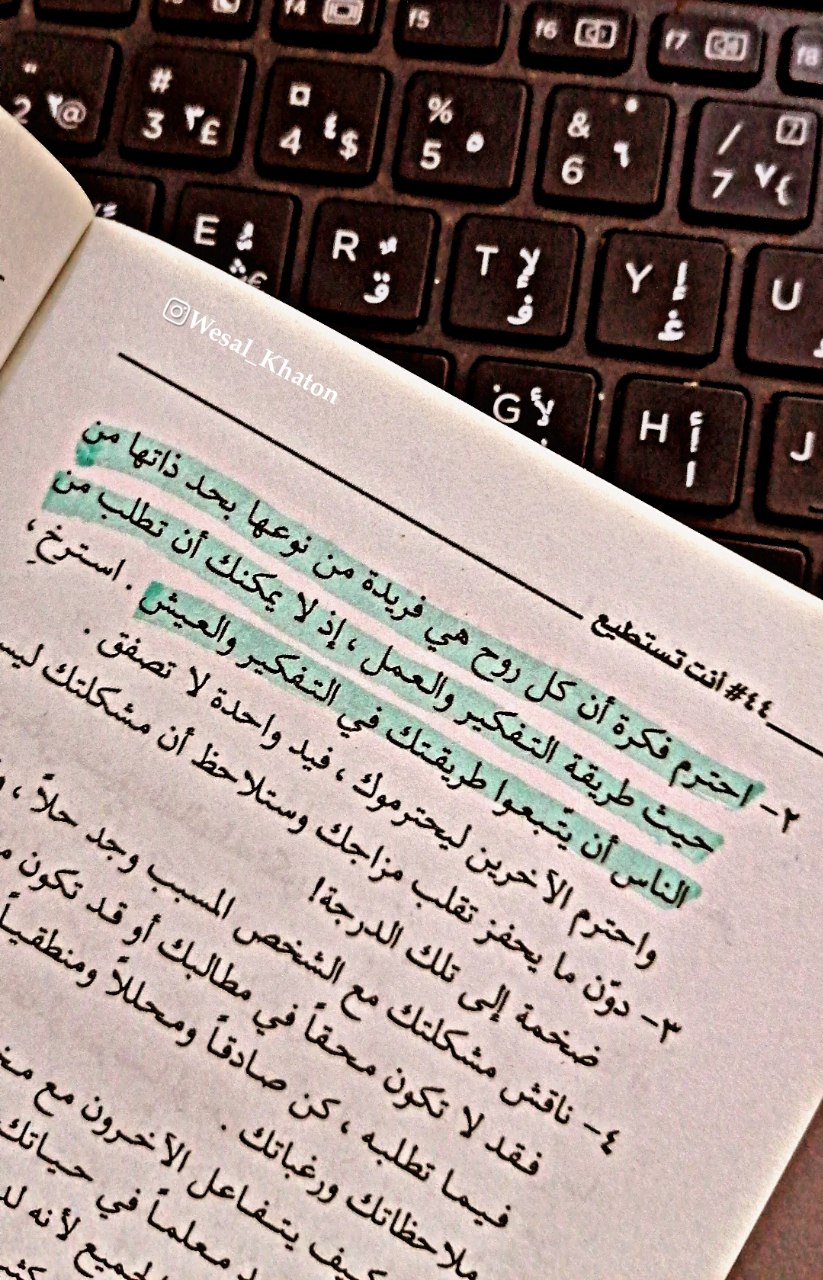 f4 f5 f6 f7 f8
2 @ ٢ # 3 ٣ £ ¤ 4 ٤ $ % 5 ٥ & 6 ٦ / 7 ٧ {
E R ق T لإ ف Y إ غ U
G لأ H أ ا J
Wesal_Khaton
٤٤# أنت تستطيع
٢- احترم فكرة أن كل روح هي فريدة من نوعها بحد ذاتها من
حيث طريقة التفكير والعمل ، إذ لا يمكنك أن تطلب من
الناس أن يتّبعوا طريقتك في التفكير والعيش . استرخِ ،
واحترم الآخرين ليحترموك ، فيد واحدة لا تصفق .
٣- دوّن ما يحفز تقلب مزاجك وستلاحظ أن مشكلتك
ضخمة إلى تلك الدرجة!
٤- ناقش مشكلتك مع الشخص المسبب وجد حلاً ،
فقد لا تكون محقاً في مطالبك أو قد تكون
فيما تطلبه ، كن صادقاً ومحللاً ومنطقياً
ملاحظاتك ورغباتك .
كيف يتفاعل الآخرون مع
معلماً في حياتك
لأنه